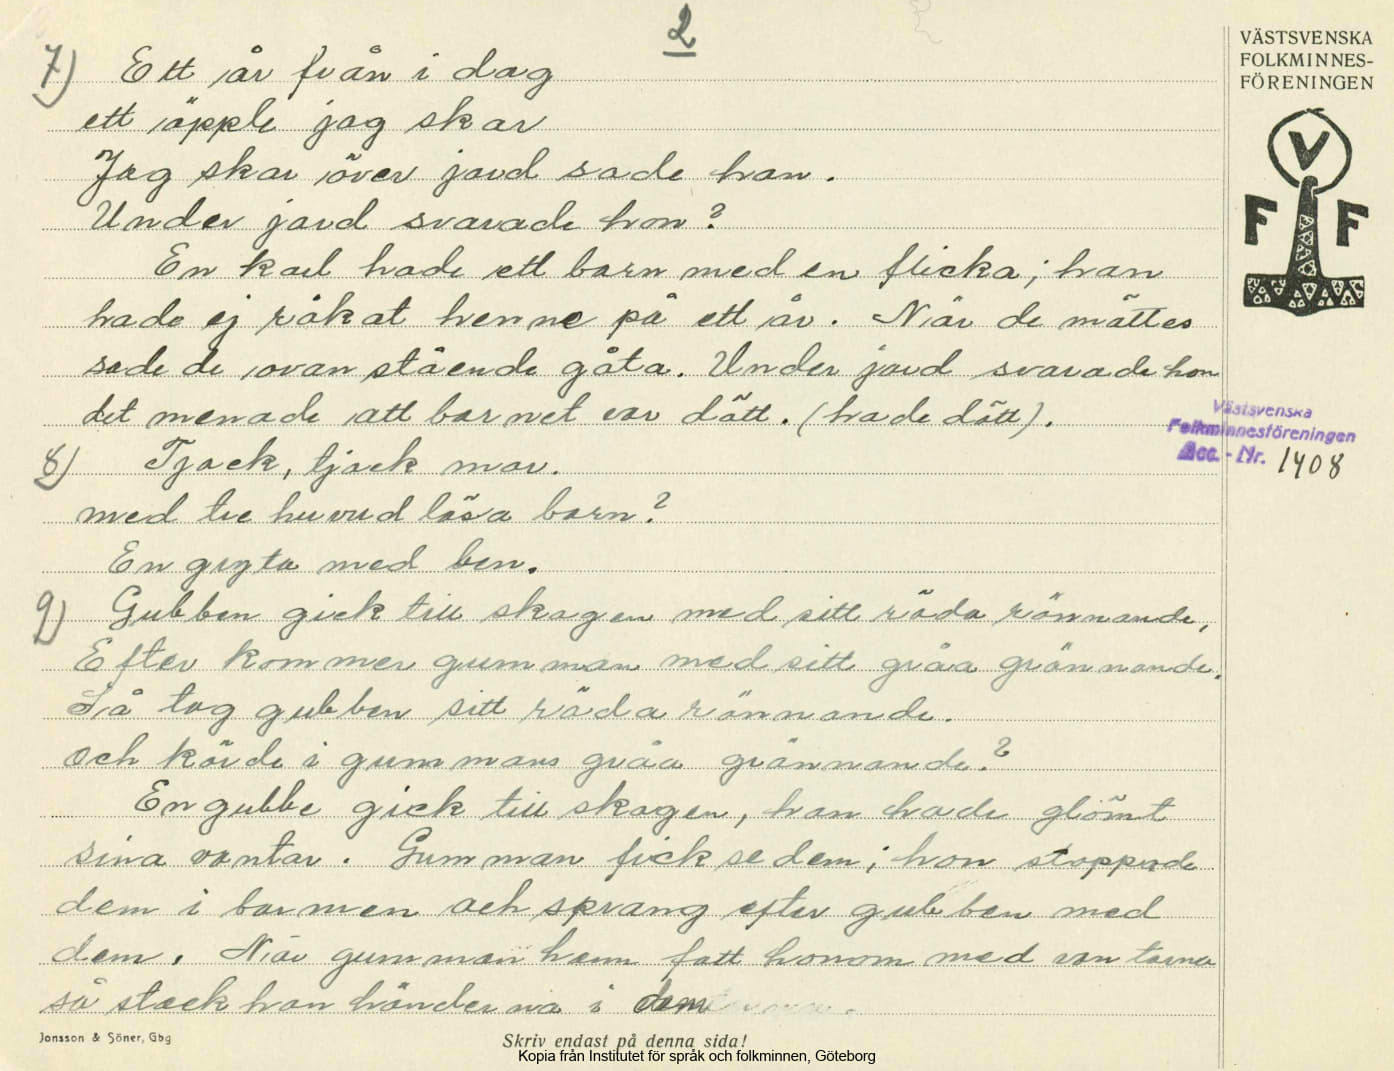 2
VÄSTSVENSKA
FOLKMINNES-
FÖRENINGEN
V
F F
7) Ett år från i dag
ett äpple jag skar
Jag skar över jord sade han.
Under jord svarade hon?
En karl hade ett barn med en flicka; han
hade ej råkat henne på ett år. När de mättes
sade de ovan stående gåta. Under jord svarade hon
det menade att barnet var dött. (hade dött).
Västsvenska
Folkminnesföreningen
Acc. - Nr. 1408
8) Tjock, tjock mor.
med tre huvud lösa barn?
En gryta med ben.
9) Gubben gick till skogen med sitt röda rönnande,
Efter kommer gumman med sitt gråa grönnande.
Så tog gubben sitt röda rönnande.
och körde i gummans gråa grönnande?
En gubbe gick till skogen, han hade glömt
sina vantar. Gumman fick se dem; hon stoppade
dem i barmen och sprang efter gubben med
dem. När gumman hem fatt honom med vantarna
så stack han händerna i dem
Jonsson & Söner, Gbg
Skriv endast på denna sida!
Kopia från Institutet för språk och folkminnen, Göteborg